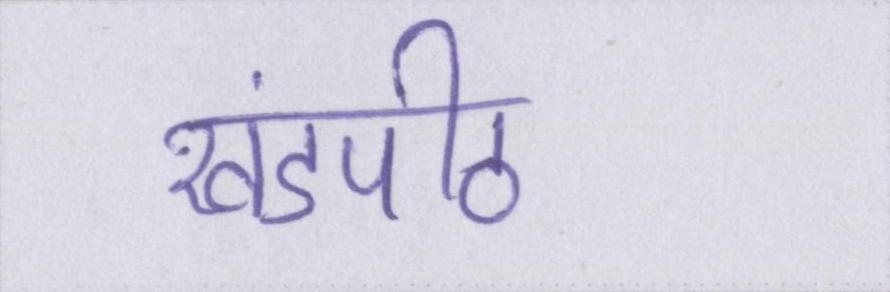 खंडपीठ